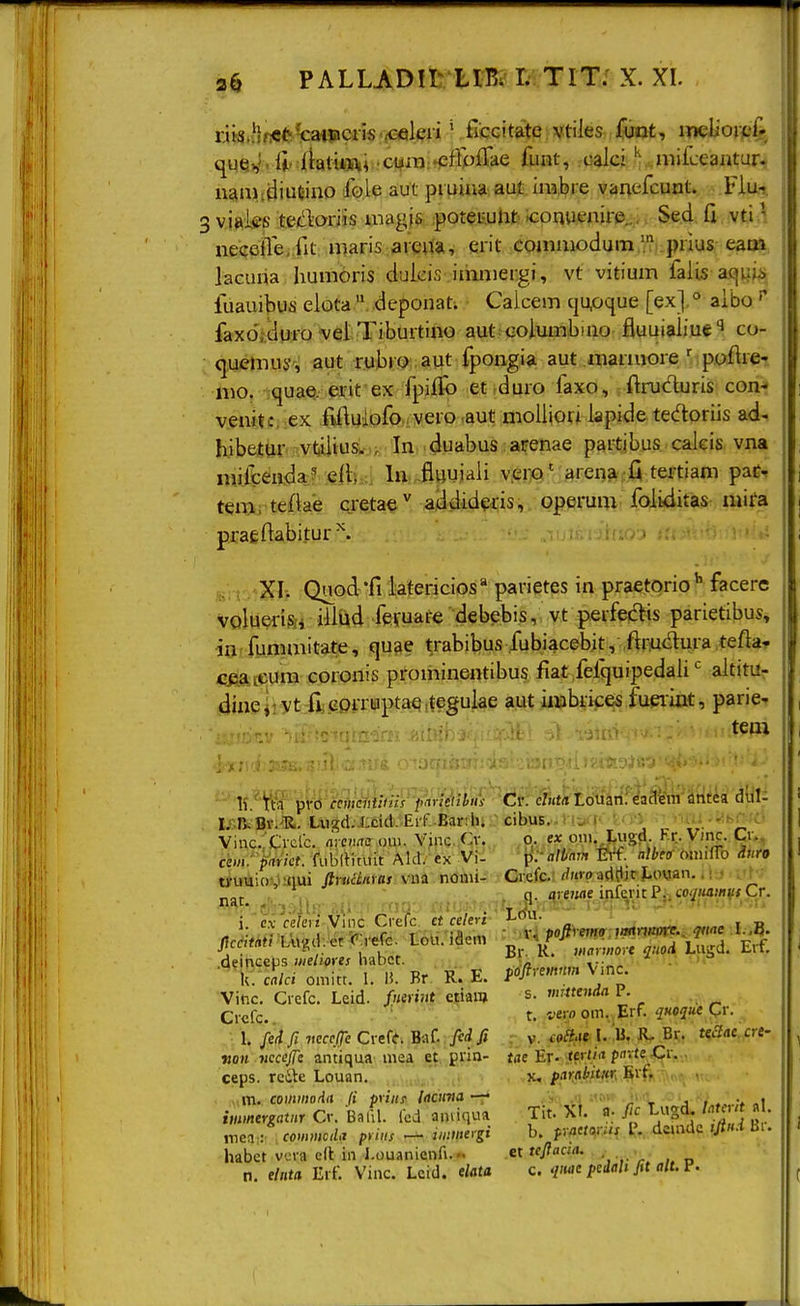 26 PALLADII LIB. I. TIT. X. XI.
riis, et cameris celeri ⁱ ficcitate vtiles funt, meliores-
que, fi ftatim, cum effoffae funt, calci ᵏ mifceantur.
nam diutino fole aut pruina aut imbre vanefcunt. Flu-
3 viales tectoriis magis poterunt conuenire. Sed fi vti ˡ
neceffe fit maris arena, erit commodum ᵐ prius eam
lacuna humoris dulcis immergi, vt vitium falis aquis
fuauibus elota ⁿ deponat. Calcem quoque [ex] ᵒ albo ᵖ
faxo duro vel Tiburtino aut columbino fluuialiue q co-
quemus, aut rubro aut fpongia aut marmore ʳ poftre-
mo. quae erit ex fpiffo et duro faxo, ftructuris con-
venit; ex fiftulofo vero aut molliori lapide tectoriis ad-
hibetur vtilius. In duabus arenae partibus calcis vna
mifcenda ˢ eft. In fluuiali vero ᵗ arena fi tertiam par-
tem teftae cretae ᵛ addideris, operum foliditas mira
praeftabitur ˣ.
XI. Quod fi latericios ᵃ parietes in praetorio ᵇ facere
volueris, illud feruare debebis, vt perfectis parietibus,
in fummitate, quae trabibus fubiacebit, ftructura tefta-
cea cum coronis prominentibus fiat fefquipedali ᶜ altitu-
dine, vt fi corruptae tegulae aut imbrices fuerint, parie-
tem
h. Ita pro cementitiis parietibus
I. B. Br. R. Lugd. Leid. Erf. Barth.
Vinc. Crefc. arenae om. Vinc. Cr.
cem. pariet. fubftituit Ald. ex Vi-
truuio, qui ftructuras vna nomi-
nat.
i. ex celeri Vinc Crefc. et celeri
ficcitati Lugd. et Crefc. Lou. idem
deinceps meliores habet.
k. calci omitt. I. B. Br R. E.
Vinc. Crefc. Leid. fuerint etiam
Crefc.
l. fed fi neceffe Crefc. Baf. fed fi
non neceffe antiqua mea et prin-
ceps. recte Louan.
m. commoda fi prius lacuna —
immergatur Cr. Bafil. fed antiqua
mea: commoda prius — immergi
habet vera eft in Louanienfi.
n. eluta Erf. Vinc. Leid. elata
Cr. cluta Louan. eadem antea dul-
cibus.
o. ex om. Lugd. Fr. Vinc. Cr.
p. albam Erf. albeo omiffo duro
Crefc. duro addit Louan.
q. arenae inferit P. coquamus Cr.
Lou.
r. poftremo marmore. quae I. B.
Br. R. marmore quod Lugd. Erf.
poftremum Vinc.
s. mittenda P.
t. vero om. Erf. quoque Cr.
v. coctae I. B. R. Br. tectae cre-
tae Er. tertia parte Cr.
x. parabitur Erf.
Tit. XI. a. fic Lugd. laterit al.
b. praetoriis P. deinde iftud Br.
et teftacia.
c. quae pedali fit alt. P.